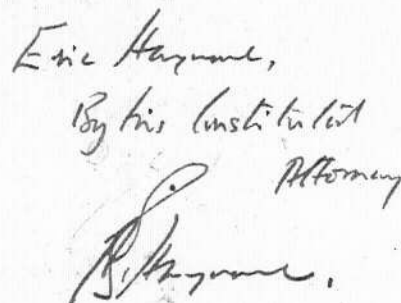 Eric Hayward,
By his Constituted
Attorney
Hayward.